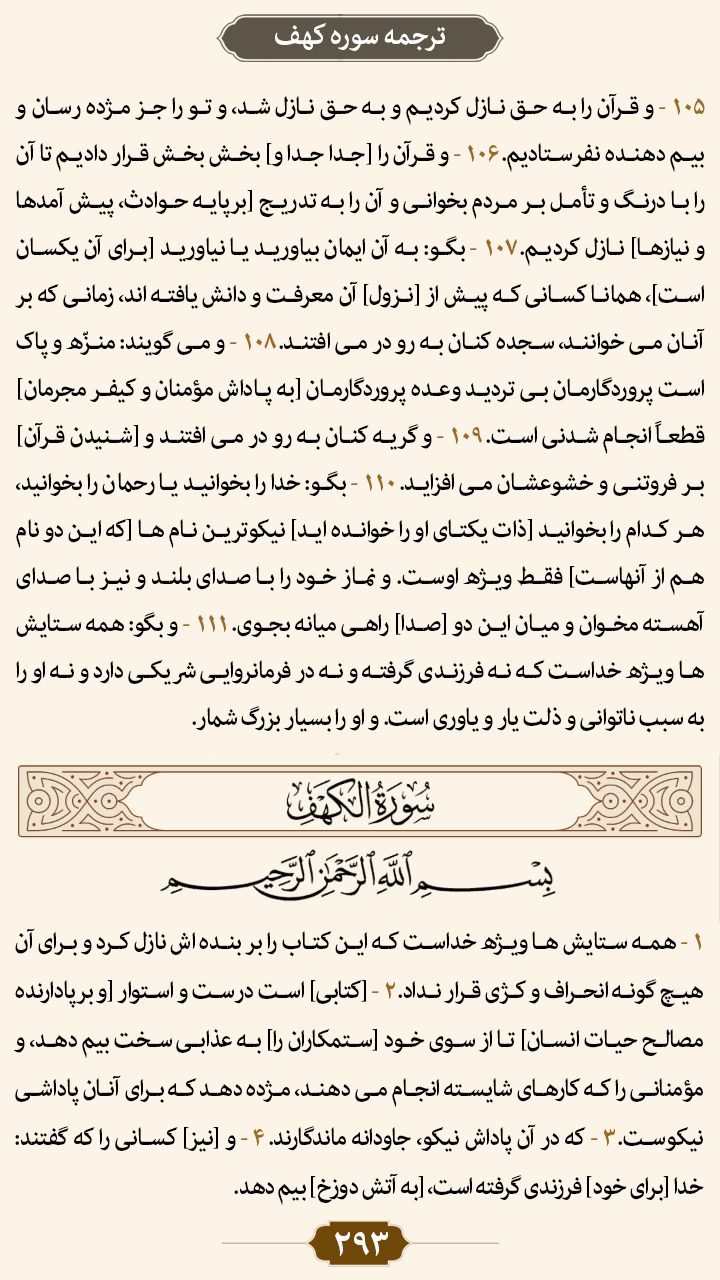 ترجمه سوره کهف
۱۰۵ - و قرآن را به حق نازل کردیم و به حق نازل شد، و تو را جز مژده رسان و
بیم دهنده نفرستادیم. ۱۰۶ - و قرآن را [جدا جدا و] بخش بخش قرار دادیم تا آن
را با درنگ و تأمل بر مردم بخوانی و آن را به تدریج [بر پایه حوادث، پیش آمدها
و نیازها] نازل کردیم. ۱۰۷ - بگو: به آن ایمان بیاورید یا نیاورید [برای آن یکسان
است]، همانا کسانی که پیش از [نزول] آن معرفت و دانش یافته اند، زمانی که بر
آنان می خوانند، سجده کنان به رو در می افتند. ۱۰۸ - و می گویند: منزّه و پاک
است پروردگارمان بی تردید وعده پروردگارمان [به پاداش مؤمنان و کیفر مجرمان]
قطعاً انجام شدنی است. ۱۰۹ - و گریه کنان به رو در می افتند و [شنیدن قرآن]
بر فروتنی و خشوعشان می افزاید. ۱۱۰ - بگو: خدا را بخوانید یا رحمان را بخوانید،
هر کدام را بخوانید [ذات یکتای او را خوانده اید] نیکوترین نام ها [که این دو نام
هم از آنهاست] فقط ویژه اوست. و نماز خود را با صدای بلند و نیز با صدای
آهسته مخوان و میان این دو [صدا] راهی میانه بجوی. ۱۱۱ - و بگو: همه ستایش
ها ویژه خداست که نه فرزندی گرفته و نه در فرمانروایی شریکی دارد و نه او را
به سبب ناتوانی و ذلت یار و یاوری است. و او را بسیار بزرگ شمار.
سُورَةُ الكَهْفِ
بِسْمِ اللَّهِ الرَّحْمَٰنِ الرَّحِيمِ
۱ - همه ستایش ها ویژه خداست که این کتاب را بر بنده اش نازل کرد و برای آن
هیچ گونه انحراف و کژی قرار نداد. ۲ - [کتابی] است درست و استوار [و بر پادارنده
مصالح حیات انسان] تا از سوی خود [ستمکاران را] به عذابی سخت بیم دهد، و
مؤمنانی را که کارهای شایسته انجام می دهند، مژده دهد که برای آنان پاداشی
نیکوست. ۳ - که در آن پاداش نیکو، جاودانه ماندگارند. ۴ - و [نیز] کسانی را که گفتند:
خدا [برای خود] فرزندی گرفته است، [به آتش دوزخ] بیم دهد.
۲۹۳